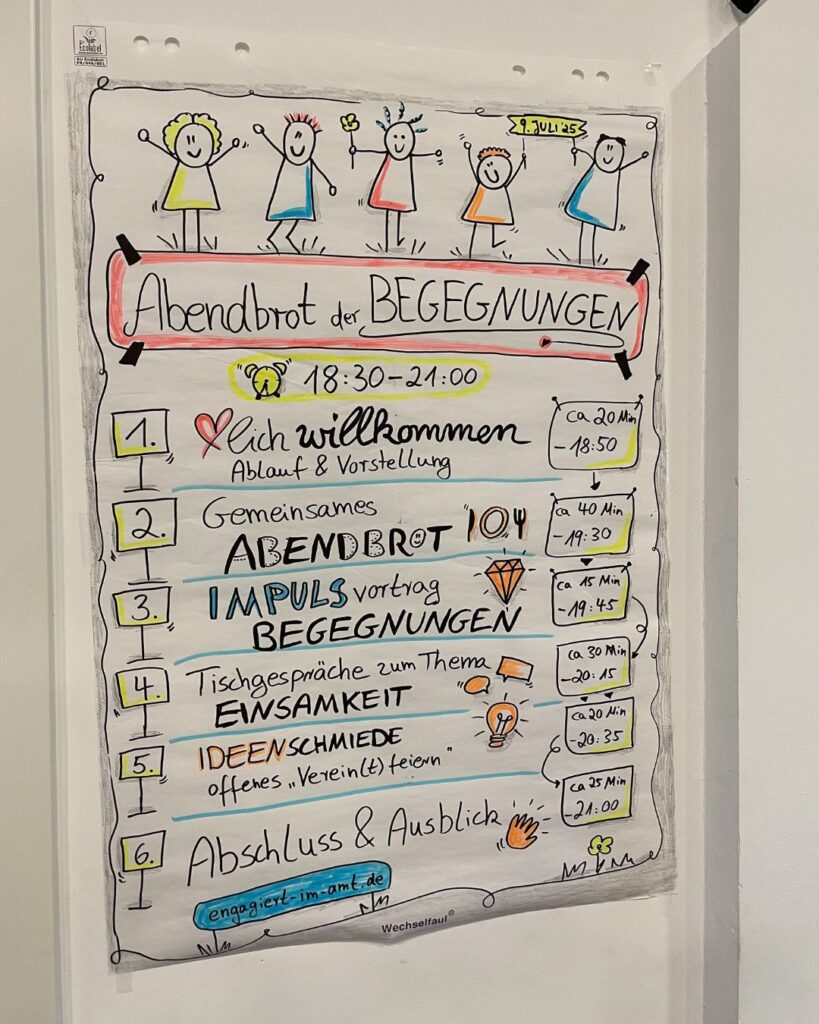 Ecolabel
EU Ecolabel:
FR/046/001
9. JULI '25
Abendbrot der BEGEGNUNGEN
18:30–21:00
1.
lich willkommen
Ablauf & Vorstellung
ca 20 Min
– 18:50
2.
Gemeinsames
ABENDBROT
ca 40 Min
– 19:30
3.
IMPULSvortrag
BEGEGNUNGEN
ca 15 Min
– 19:45
4.
Tischgespräche zum Thema
EINSAMKEIT
ca 30 Min
– 20:15
5.
IDEENSCHMIEDE
offenes „Verein(t) feiern"
ca 20 Min
– 20:35
6.
Abschluss & Ausblick
ca 25 Min
– 21:00
engagiert-im-amt.de
Wechselfaul®